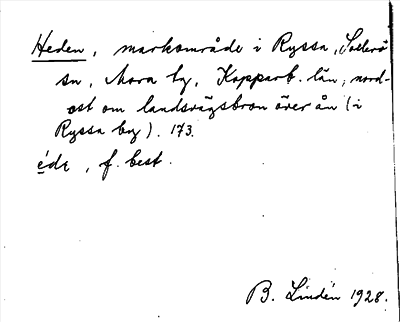 Heden, markområde i Ryssa, Sollerö
sn, Mora tg, Kopparb. län; nord-
ost om landsvägsbron över ån (i
Ryssa by). 173.
f. best.
B. Lindén 1928.